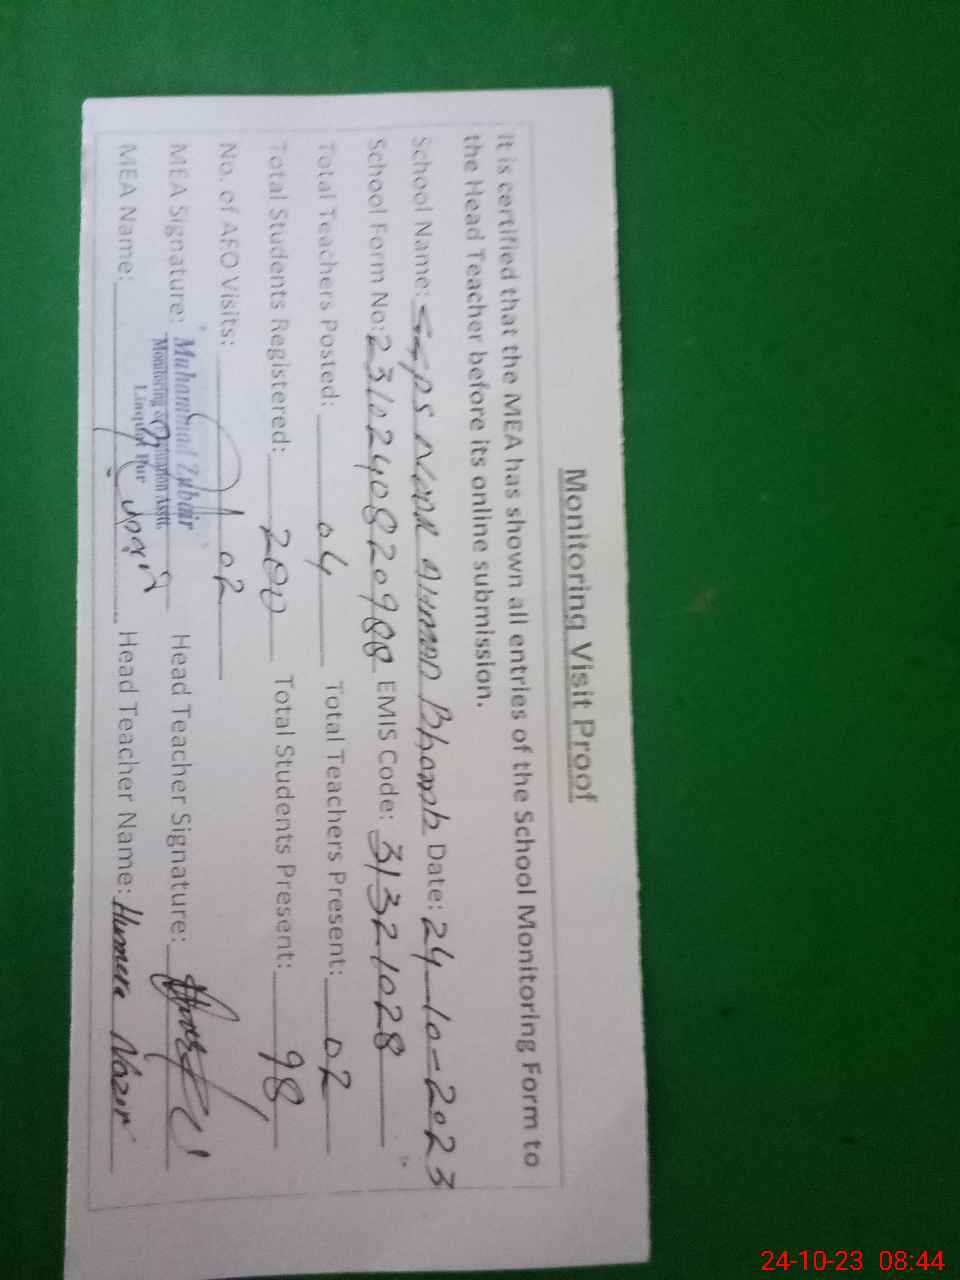 Monitoring Visit Proof
It is certified that the MEA has shown all entries of the School Monitoring Form to
the Head Teacher before its online submission.
School Name: GGPS Noor Ahmad Bhamb Date: 24-10-2023
School Form No: 2310240820988 EMIS Code: 31321028
Total Teachers Posted: 04 Total Teachers Present: 02
Total Students Registered: 200 Total Students Present: 98
No. of AFO Visits: 02
MEA Signature: Muhammad Zubair Head Teacher Signature:
Monitoring & Evaluation Asstt.
Liaquat Pur
MEA Name: Head Teacher Name: Humera Nazir
24-10-23 08:44